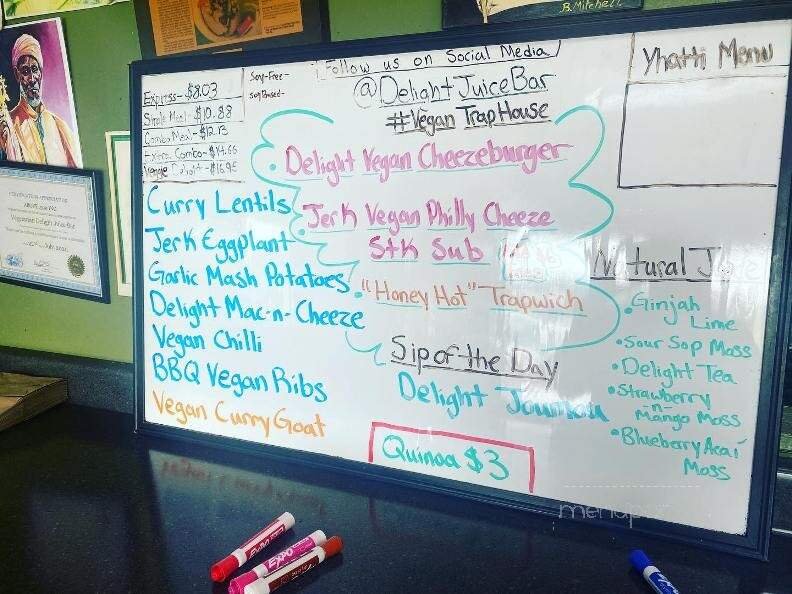 B. Mitchell
Express- $8.03
Simple Meal- $10.88
Combo Meal- $12.13
Extra Combo- $14.66
$16.95
Soy-Free-
Soy Based-
Follow us on Social Media
@DelightJuiceBar
#Vegan TrapHouse
Yhatti Menu
Delight Vegan Cheezeburger
Jerk Vegan Philly Cheeze
Stk Sub
"Honey Hot" Trapwich
Curry Lentils
Jerk Eggplant
Garlic Mash Potatoes
Delight Mac-n-Cheeze
Vegan Chilli
BBQ Vegan Ribs
Vegan Curry Goat
Sip of the Day
Delight
Quinoa $3
Natural
Ginjah
Lime
Sour Sop Moss
Delight Tea
Strawberry
-n-
Mango Moss
Blueberry Acaí
Moss
EXPO
EXPO